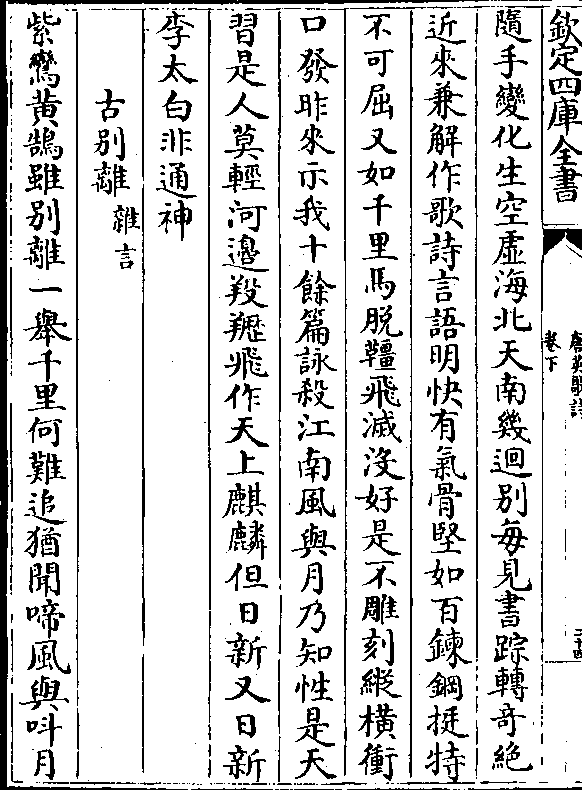 欽定四庫全書
唐英歌詩
卷下
二十四
隨手變化生空虛海北天南幾迴別每見書踪轉奇絶
近來兼解作歌詩言語明快有氣骨堅如百鍊鋼挺特
不可屈又如千里馬脫韁飛滅沒好是不雕刻縱橫衝
口發昨來示我十餘篇詠殺江南風與月乃知性是天
習是人莫輕河邊羖䍽飛作天上麒麟但日新又日新
李太白非通神
古別離雜言
紫鸞黃鵠雖別離一舉千里何難追猶聞啼風與呌月